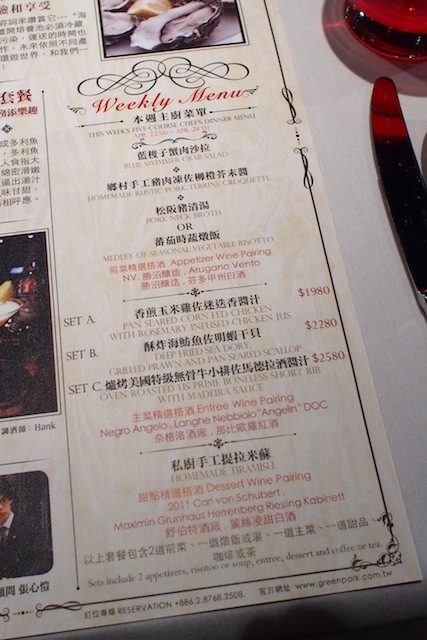 驗和享受
Weekly Menu
本週主廚菜單
THIS WEEK'S FIVE-COURSE CHEF'S DINNER MENU
APR. 22ND ~ APR. 28TH
藍梭子蟹肉沙拉
BLUE SWIMMER CRAB SALAD
鄉村手工豬肉凍佐柳橙芥末醬
HOMEMADE RUSTIC PORK TERRINE CROQUETTE
松阪豬清湯
PORK NECK BROTH
OR
蕃茄時蔬燉飯
MEDLEY OF SEASONAL VEGETABLE RISOTTO
前菜精選搭酒 Appetizer Wine Pairing
NV. 勝沼釀造 . Arugano Vento
勝沼釀造 . 芬多甲州白酒
$1980
SET A.
香煎玉米雞佐迷迭香醬汁
PAN SEARED CORN FED CHICKEN
WITH ROSEMARY INFUSED CHICKEN JUS
$2280
SET B.
酥炸海魴魚佐明蝦干貝
DEEP FRIED SEA DORY,
GRILLED PRAWN AND PAN SEARED SCALLOP
$2580
SET C. 爐烤美國特級無骨牛小排佐馬德拉酒醬汁
OVEN ROASTED US PRIME BONELESS SHORT RIB
WITH MADEIRA SAUCE
主菜精選搭酒 Entree Wine Pairing
Negro Angelo , Langhe Nebbiolo "Angelin" DOC
奈格洛酒廠 . 那比歐羅紅酒
私廚手工提拉米蘇
HOMEMADE TIRAMISU
甜點精選搭酒 Dessert Wine Pairing
2011 Carl von Schubert ,
Maximin Grunhaus Herrenberg Riesling Kabinett
舒伯特酒廠 . 麗絲凌甜白酒
以上套餐包含2道前菜、一道燉飯或湯、一道主菜、一道甜品、
咖啡或茶
Sets include 2 appetizers, risotoo or soup, entree, dessert and coffee or tea.
訂位專線 RESERVATION +886.2.8768.2508. 官方網址 www.greenpark.com.tw
套餐
調酒師：Hank
顧問 張心愷